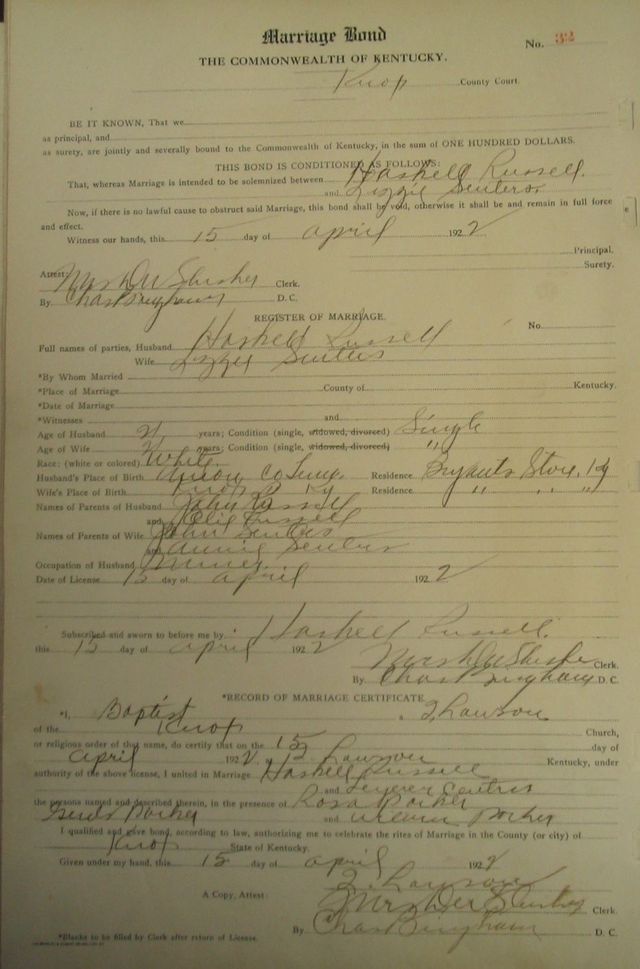 Marriage Bond
No. 32
THE COMMONWEALTH OF KENTUCKY.
Knox County Court.
BE IT KNOWN, That we
as principal, and
as surety, are jointly and severally bound to the Commonwealth of Kentucky, in the sum of ONE HUNDRED DOLLARS.
THIS BOND IS CONDITIONED AS FOLLOWS:
That, whereas Marriage is intended to be solemnized between Haskell Russell.
and Lizzie
Now, if there is no lawful cause to obstruct said Marriage, this bond shall be void, otherwise it shall be and remain in full force
and effect.
Witness our hands, this 15 day of april 1922
Principal.
Surety.
Attest:
Clerk.
By Chas Bingham D. C.
REGISTER OF MARRIAGE.
No.
Full names of parties, Husband Haskell Russell
Wife Lizzie
*By Whom Married
*Place of Marriage County of Kentucky.
*Date of Marriage
*Witnesses and
Age of Husband 21 years; Condition (single, widowed, divorced) Single
Age of Wife years; Condition (single, widowed, divorced) "
Race: (white or colored) White.
Husband's Place of Birth Union Co Tenn. Residence Bryants Store, Ky
Wife's Place of Birth Knox Ky Residence " " "
Names of Parents of Husband John Russell
and Russell
Names of Parents of Wife John
and Annie
Occupation of Husband Miner
Date of License 15 day of april 1922
Subscribed and sworn to before me by Haskell Russell.
this 15 day of april 1922
Clerk.
By Chas Bingham D. C.
*RECORD OF MARRIAGE CERTIFICATE
*I, Baptist Lawson
of the Knox Church,
or religious order of that name, do certify that on the 15 day of
april 1922 Lawson Kentucky, under
authority of the above license, I united in Marriage Haskell Russell
and
the persons named and described therein, in the presence of Rosa Parker
Parker and Parker
I qualified and gave bond, according to law, authorizing me to celebrate the rites of Marriage in the County (or city) of
Knox State of Kentucky.
Given under my hand, this 15 day of april 1922
Lawson
A Copy, Attest: Clerk.
By Chas Bingham D. C.
*Blanks to be filled by Clerk after return of License.